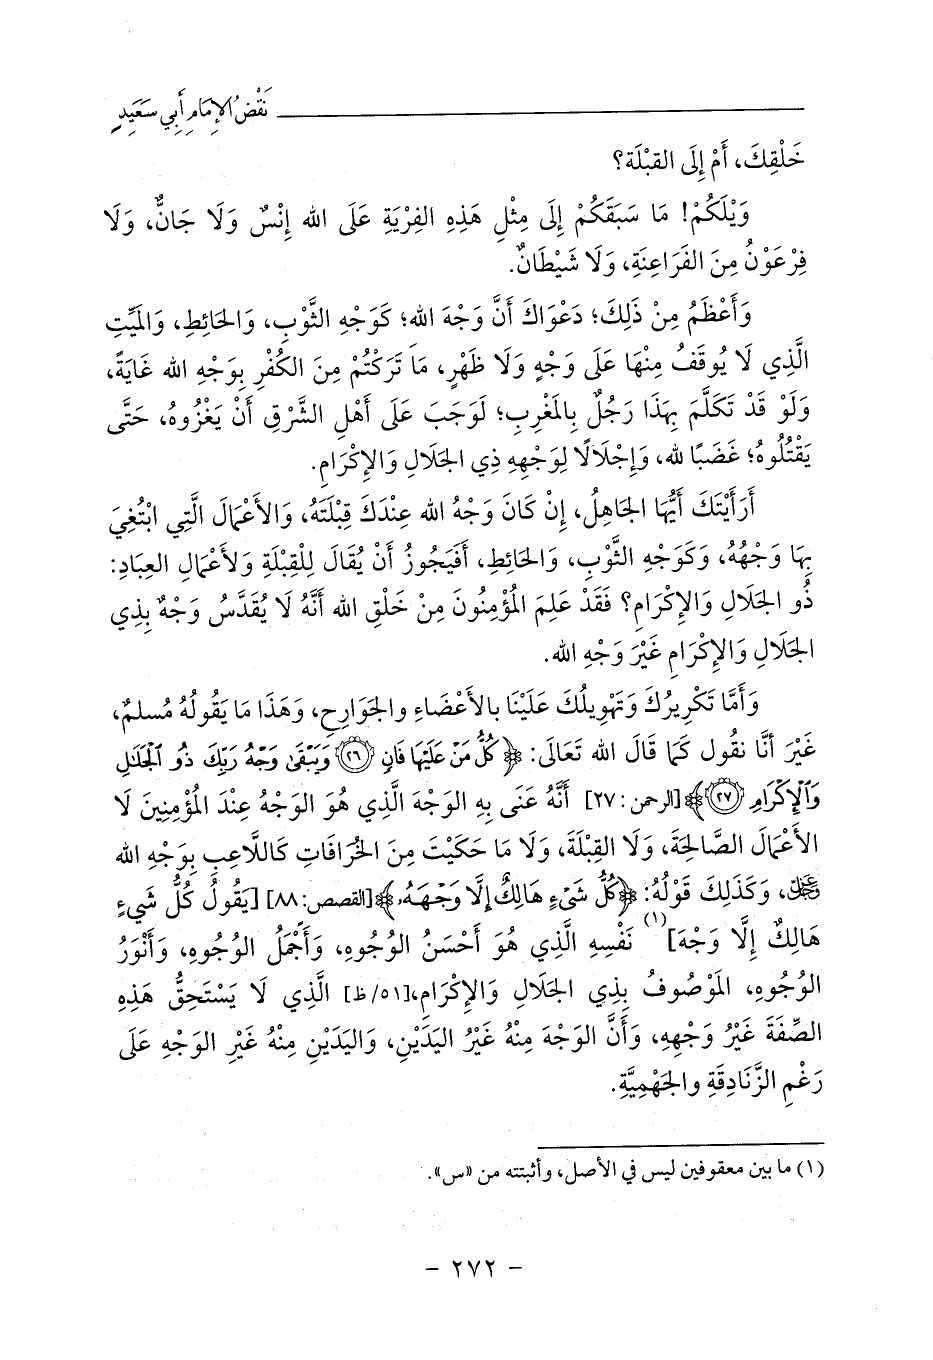 نَقْضُ الإِمَامِ أَبِي سَعَيِدٍ
خَلْقِكَ، أَمْ إِلَى القبْلَة؟
وَيْلَكُمْ! مَا سَبَقَكُمْ إِلَى مِثْلِ هَذِهِ الفِرْيَةِ عَلَى الله إِنْسٌ وَلَا جَانٌّ، وَلَا
فِرْعَوْنُ مِنَ الفَرَاعِنَةِ، وَلَا شَيْطَانٌ.
وَأَعْظَمُ مِنْ ذَلِكَ؛ دَعْوَاكَ أَنَّ وَجْهَ الله؛ كَوَجْهِ الثَّوْبِ، وَالحَائِطِ، وَالمَيِّتِ
الَّذِي لَا يُوقَفُ مِنْهَا عَلَى وَجْهٍ وَلَا ظَهْرٍ، مَا تَرَكْتُمْ مِنَ الكُفْرِ بِوَجْهِ الله غَايَةً،
وَلَوْ قَدْ تَكَلَّمَ بِهَذَا رَجُلٌ بِالمَغْرِبِ؛ لَوَجَبَ عَلَى أَهْلِ الشَّرْقِ أَنْ يَغْزُوهُ، حَتَّى
يَقْتُلُوهُ؛ غَضَبًا لله، وَإِجْلَالًا لِوَجْهِهِ ذِي الجَلَالِ وَالإِكْرَامِ.
أَرَأَيْتَكَ أَيُّهَا الجَاهِلُ، إِنْ كَانَ وَجْهُ الله عِنْدَكَ قِبْلَتَهُ، وَالأَعْمَالَ الَّتِي ابْتُغِيَ
بِهَا وَجْهُهُ، وَكَوَجْهِ الثَّوْبِ، وَالحَائِطِ، أَفَيَجُوزُ أَنْ يُقَالَ لِلْقِبْلَةِ وَلأَعْمَالِ العِبَادِ:
ذُو الجَلَالِ وَالإِكْرَامِ؟ فَقَدْ عَلِمَ المُؤْمِنُونَ مِنْ خَلْقِ الله أَنَّهُ لَا يُقَدَّسُ وَجْهٌ بِذِي
الجَلَالِ وَالإِكْرَامِ غَيْرَ وَجْهِ الله.
وَأَمَّا تَكْرِيرُكَ وَتَهْوِيلُكَ عَلَيْنَا بالأَعْضَاءِ والجَوَارِحِ، وَهَذَا مَا يَقُولُهُ مُسلمٌ،
غَيْرَ أنَّا نقُول كَمَا قَالَ الله تَعَالَى: ﴿كُلُّ مَنْ عَلَيْهَا فَانٍ ﴿٢٦﴾ وَيَبْقَىٰ وَجْهُ رَبِّكَ ذُو ٱلْجَلَٰلِ
وَٱلْإِكْرَامِ ﴿٢٧﴾﴾ [الرحمن: ٢٧] أَنَّهُ عَنَى بِهِ الوَجْهَ الَّذِي هُوَ الوَجْهُ عِنْدَ المُؤْمِنِينَ لَا
الأَعْمَالَ الصَّالِحَةَ، وَلَا القِبْلَةَ، وَلَا مَا حَكَيْتَ مِنَ الخُرَافَاتِ كَاللَّاعِبِ بِوَجْهِ الله
عَزَّ وَجَلَّ، وَكَذَلِكَ قَوْلُهُ: ﴿كُلُّ شَىْءٍ هَالِكٌ إِلَّا وَجْهَهُۥ﴾ [القصص: ٨٨] [يَقُولُ كُلُّ شَيءٍ
هَالِكٌ إِلَّا وَجْهَ]⁽¹⁾ نَفْسِهِ الَّذِي هُوَ أَحْسَنُ الوُجُوهِ، وَأَجْمَلُ الوُجُوهِ، وَأَنْوَرُ
الوُجُوهِ، المَوْصُوفُ بِذِي الجَلَالِ وَالإِكْرَامِ، [٥١/ظ] الَّذِي لَا يَسْتَحِقُّ هَذِهِ
الصِّفَةَ غَيْرُ وَجْهِهِ، وَأَنَّ الوَجْهَ مِنْهُ غَيْرُ اليَدَيْنِ، وَاليَدَيْنِ مِنْهُ غَيْرِ الوَجْهِ عَلَى
رَغْمِ الزَّنَادِقَةِ والجَهْمِيَّةِ.
(١) ما بين معقوفين ليس في الأصل، وأثبتته من «س».
- ٢٧٢ -